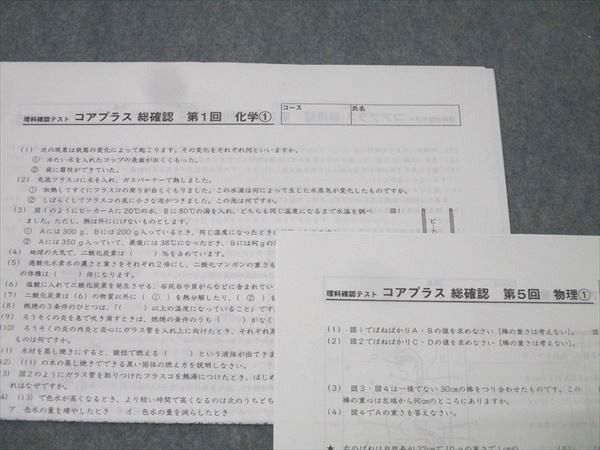 理科確認テスト コアプラス 総確認 第1回 化学①
コース 氏名
(1) 次の現象は状態の変化によって起こります。その変化をそれぞれ何といいますか。
① 冷たい水を入れたコップの表面が白くくもった。
② 庭に霜柱ができていた。
(2) 丸底フラスコに水を入れ、ガスバーナーで熱しました。
① 加熱してすぐにフラスコの周りが白くくもりました。この水滴は何によって生じた水蒸気が変化したものですか。
② しばらくしてフラスコの底に小さな泡がつきました。この泡は何ですか。
(3) 図1のようにビーカーAに20℃の水、Bに80℃の湯を入れ、どちらも同じ温度になるまで水温を調べ
ました。ただし、熱は外ににげないものとします。
図1
① Aには300g、Bには200g入っているとき、同じ温度になったとき
② Aには350g入っていて、最後には38℃になったとき、Bには何gの
(4) 地球の大気で、二酸化炭素は( )%を占めています。
(5) 過酸化水素水の濃さと重さをそれぞれ2倍にし、二酸化マンガンの重さも
の体積は( )倍になります。
(6) 塩酸に入れて二酸化炭素を発生させる、石灰石や貝がらなどに含まれてい
(7) 二酸化炭素は(6)の物質以外に( ① )を熱分解したり、( ② )を
(8) 燃焼の3条件のひとつは、「( )以上の温度になっていること」です。
(9) ろうそくの炎を息で吹き消すときは、燃焼の条件のうち( )がなく
(10) ろうそくの炎の内炎と炎心にガラス管を入れ上に向けたとき、それぞれ
ものは何ですか。
1) 木材を蒸し焼きにすると、酸性で燃える( )という液体が出てきま
2) (11)の木の蒸し焼きでできる黒い固体の燃え方を説明しなさい。
3) 図2のようにガラス管を取りつけたフラスコを熱湯につけたとき、はじめ
れはなぜですか。
4) (13)で色水が高くなるとき、より短い時間で高くなるのは次のうちどち
ア.色水の量を増やしたとき イ.色水の量を減らしたとき
理科確認テスト コアプラス 総確認 第5回 物理①
(1) 図1でばねばかりA・Bの値を求めなさい[棒の重さは考えない]。
(2) 図2でばねばかりC・Dの値を求めなさい[棒の重さは考えない]。
(3) 図3・図4は一様でない30cmの棒をつり合わせたものです。この
棒の重心は左端から何cmのところにありますか。
(4) 図4でAの重さを答えなさい。